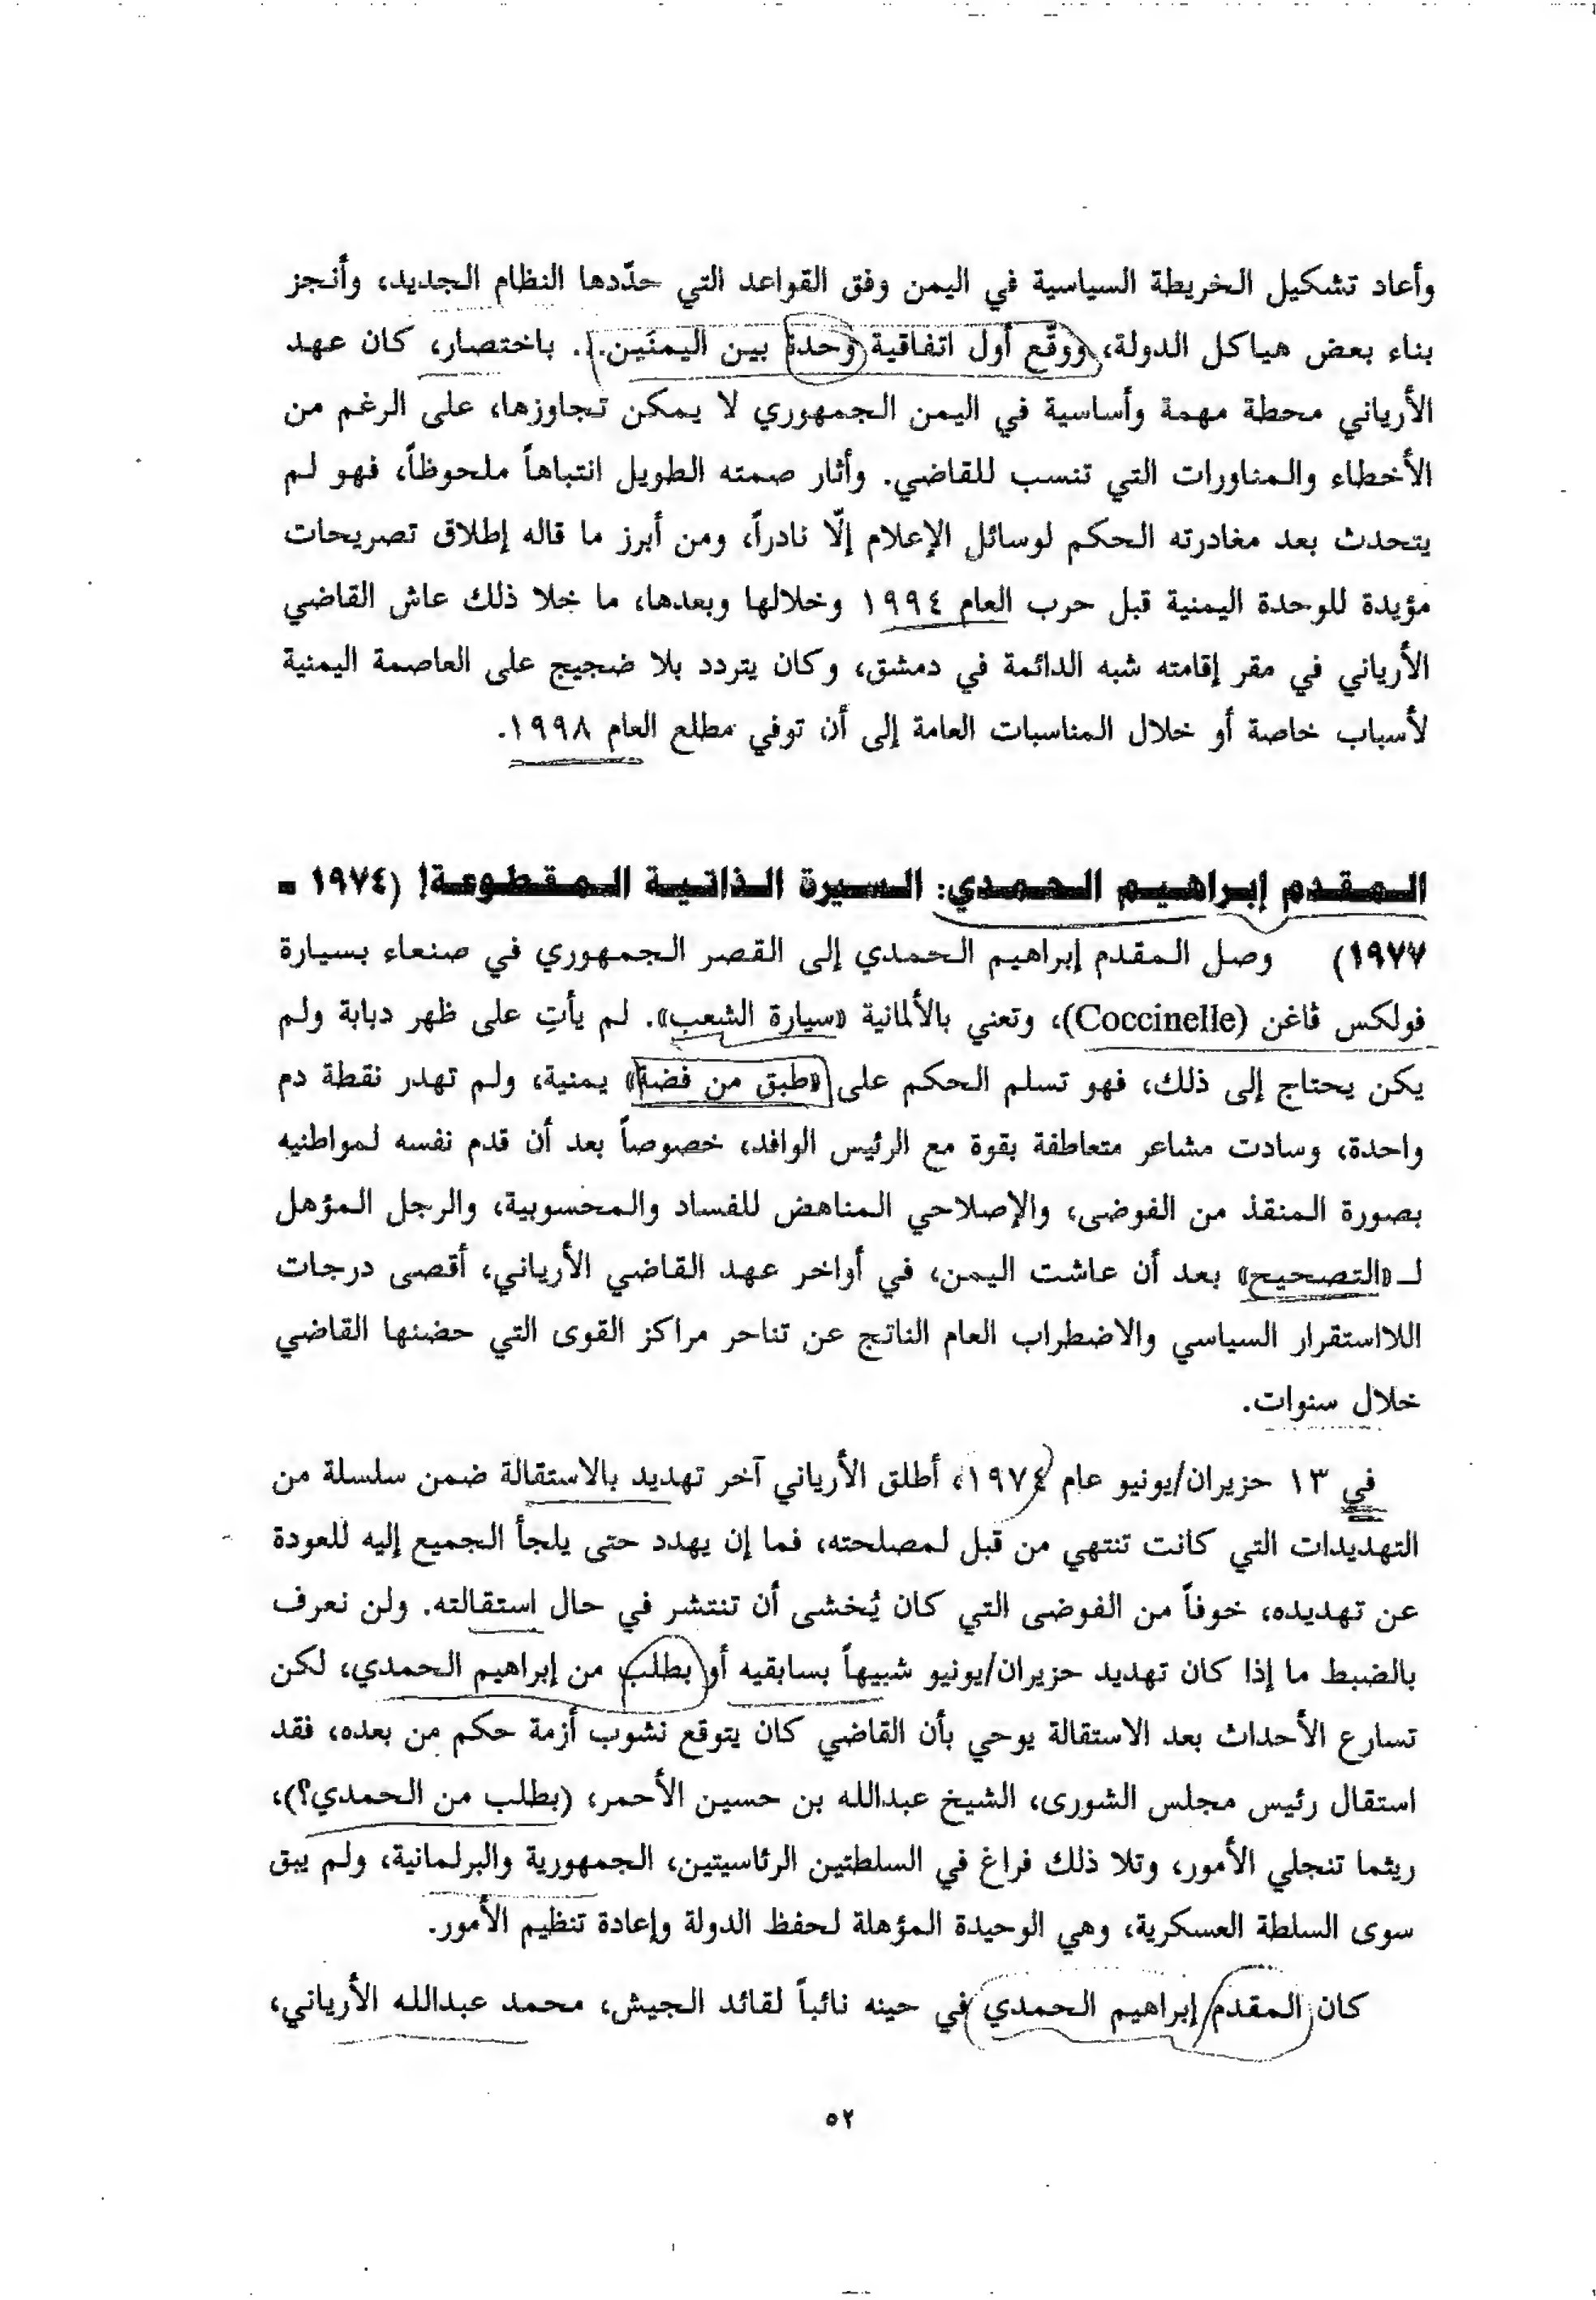 وأعاد تشكيل الخريطة السياسية في اليمن وفق القواعد التي حدّدها النظام الجديد، وأنجز
بناء بعض هياكل الدولة، ووقّع أول اتفاقية وحدة بين اليمنَين... باختصار، كان عهد
الأرياني محطة مهمة وأساسية في اليمن الجمهوري لا يمكن تجاوزها، على الرغم من
الأخطاء والمناورات التي تنسب للقاضي. وأثار صمته الطويل انتباهاً ملحوظاً، فهو لم
يتحدث بعد مغادرته الحكم لوسائل الإعلام إلّا نادراً، ومن أبرز ما قاله إطلاق تصريحات
مؤيدة للوحدة اليمنية قبل حرب العام ١٩٩٤ وخلالها وبعدها، ما خلا ذلك عاش القاضي
الأرياني في مقر إقامته شبه الدائمة في دمشق، وكان يتردد بلا ضجيج على العاصمة اليمنية
لأسباب خاصة أو خلال المناسبات العامة إلى أن توفي مطلع العام ١٩٩٨.
المقدم إبراهيم الحمدي: السيرة الذاتية المقطوعة! (١٩٧٤ -
١٩٧٧) وصل المقدم إبراهيم الحمدي إلى القصر الجمهوري في صنعاء بسيارة
فولكس ڤاغن (Coccinelle)، وتعني بالألمانية «سيارة الشعب». لم يأتِ على ظهر دبابة ولم
يكن يحتاج إلى ذلك، فهو تسلم الحكم على «طبق من فضة» يمنية، ولم تهدر نقطة دم
واحدة، وسادت مشاعر متعاطفة بقوة مع الرئيس الوافد، خصوصاً بعد أن قدم نفسه لمواطنيه
بصورة المنقذ من الفوضى، والإصلاحي المناهض للفساد والمحسوبية، والرجل المؤهل
لـ «التصحيح» بعد أن عاشت اليمن، في أواخر عهد القاضي الأرياني، أقصى درجات
اللااستقرار السياسي والاضطراب العام الناتج عن تناحر مراكز القوى التي حضنها القاضي
خلال سنوات.
في ١٣ حزيران/يونيو عام ١٩٧٤، أطلق الأرياني آخر تهديد بالاستقالة ضمن سلسلة من
التهديدات التي كانت تنتهي من قبل لمصلحته، فما إن يهدد حتى يلجأ الجميع إليه للعودة
عن تهديده، خوفاً من الفوضى التي كان يُخشى أن تنتشر في حال استقالته. ولن نعرف
بالضبط ما إذا كان تهديد حزيران/يونيو شبيهاً بسابقيه أو بطلب من إبراهيم الحمدي، لكن
تسارع الأحداث بعد الاستقالة يوحي بأن القاضي كان يتوقع نشوب أزمة حكم من بعده، فقد
استقال رئيس مجلس الشورى، الشيخ عبدالله بن حسين الأحمر، (بطلب من الحمدي؟)،
ريثما تنجلي الأمور، وتلا ذلك فراغ في السلطتين الرئاسيتين، الجمهورية والبرلمانية، ولم يبق
سوى السلطة العسكرية، وهي الوحيدة المؤهلة لحفظ الدولة وإعادة تنظيم الأمور.
كان المقدم إبراهيم الحمدي في حينه نائباً لقائد الجيش، محمد عبدالله الأرياني،
٥٢